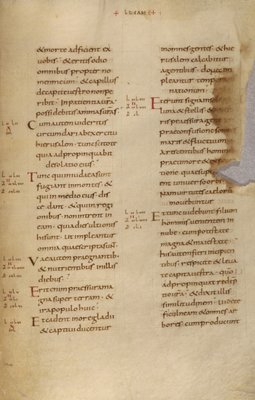 LUCAM
& morte adficient ex
uobis . & eritis odio
omnibus propter no
men meum . & capillus
de capite uestro non pe
ribit . In patientia ura
possidebitis animas uras
Cum autem uideri
tis circumdari ab exercitu
hierusalem . tunc scitote
quia adpropinquabit
desolatio eius
Tunc qui in iudaea sunt
fugiant in montes . &
qui in medio eius dis
cedant . & qui in regi
onibus . non intrent in
eam . quia dies ultionis
hi sunt . ut impleantur
omnia quae scripta sunt
Vae autem praegnantib
& nutrientibus in illis
diebus
Erit enim pressura ma
gna super terram . &
ira populo huic
Et cadent in ore gladii
& captiui ducentur
in omnes gentes . & hie
rusalem calcabitur
a gentibus . donec im
pleantur
Et erunt signa in sole
& luna & stellis
pressura
prae confusione soni
maris & fluctuum
arescentibus hominib
prae timore & expec
tatione quae
ent uniuerso orbi
uirtutes caelorum
mouebuntur
Et tunc uidebunt filium
hominis uenientem in
nube . cum potestate
magna & maiestate
his autem fieri incipien
tibus . respicite & leua
te capita uestra . quo
adpropinquat redemp
tio ura . & dixit illis
similitudinem . Uidete
ficulneam & omnes ar
bores . cum producunt